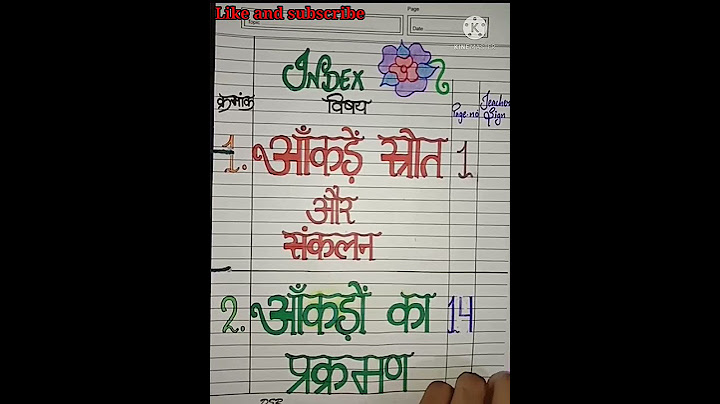 Like and subscribe
Page
Topic
Date
KINEMASTER
INDEX
क्रमांक
विषय
Page.no
Teacher Sign
1. आँकड़ें स्रोत 1
और
संकलन
2. आँकड़ों का 14
प्रक्रमण